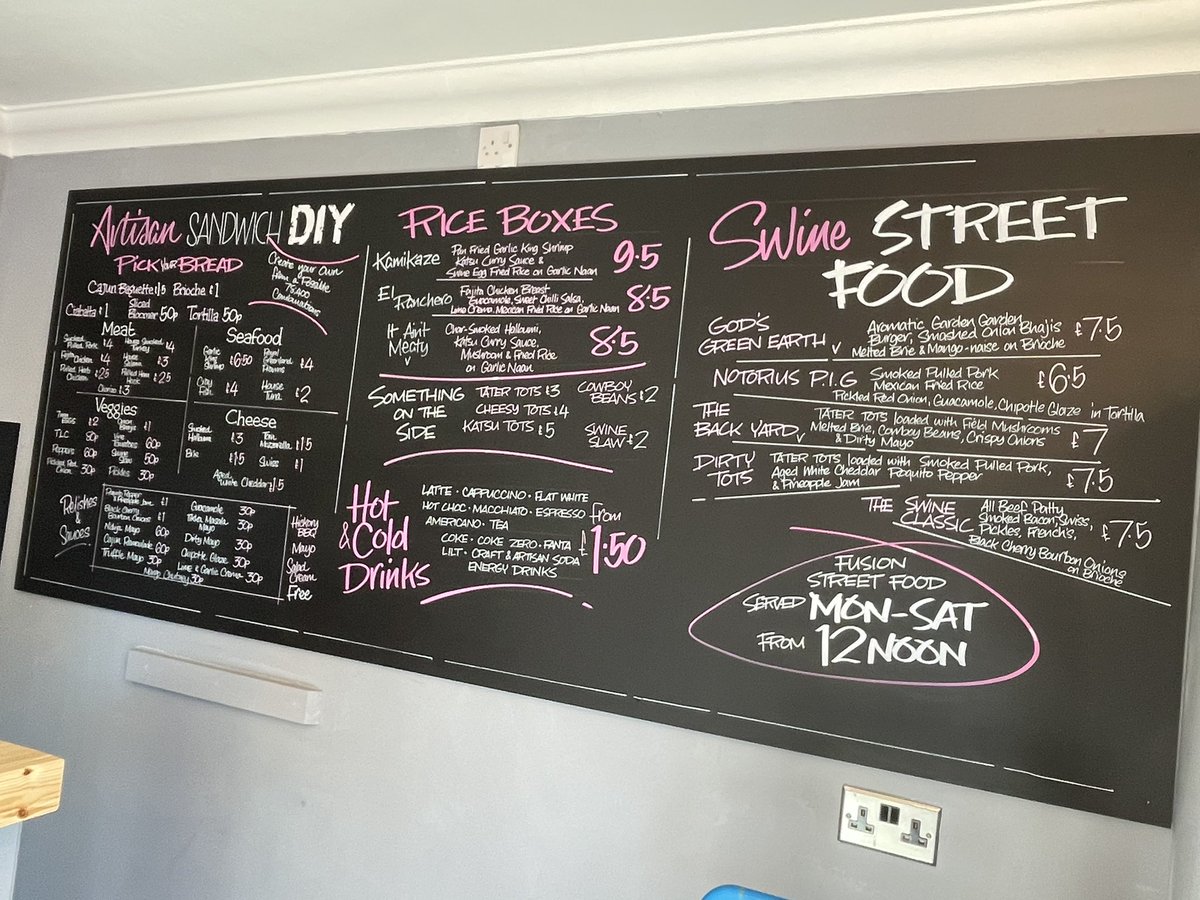 Artisan SANDWICH DIY
PICK YOUR BREAD
Create your own
from a Possible
75,400
Combinations
Cajun Baguette £1.5 Brioche £1
Ciabatta £1 Sliced Bloomer 50p Tortilla 50p
Meat
Smoked Pulled Pork £4
House Smoked Turkey £4
Fajita Chicken £4
House Salami £3
Pulled Herb Chicken £2.5
Pulled Ham Hock £2.5
Chorizo £3
Seafood
Garlic King Shrimp £6.50
Royal Greenland Prawns £4
Cray Fish £4
House Tuna £2
Veggies
EGGS £2
Onion Bhajis £1
TLC 90p
Vine Tomatoes 60p
Peppers 60p
Swine Slaw 50p
Pickled Red Onion 30p
Pickles 30p
Cheese
Smoked Halloumi £3
Torn Mozzarella £1.5
Brie £1.5
Swiss £1
Aged White Cheddar £1.5
Relishes
& Sauces
Poquito Pepper & Pineapple Jam £1
Black Cherry Bourbon Onions £1
Nduja Mayo 60p
Cajun Remoulade 60p
Truffle Mayo 30p
Guacamole 30p
Tikka Masala Mayo 30p
Dirty Mayo 30p
Chipotle Glaze 30p
Lime & Garlic Crema 30p
Mango Chutney 30p
Hickory
BBQ
Mayo
Salad
Cream
Free
RICE BOXES
Kamikaze
Pan Fried Garlic King Shrimp
Katsu Curry Sauce &
Swine Egg Fried Rice on Garlic Naan
9.5
El Ranchero
Fajita Chicken Breast
Guacamole, Sweet Chilli Salsa,
Lime Crema, Mexican Fried Rice on Garlic Naan
8.5
It Ain't
Meaty V
Char-Smoked Halloumi,
Katsu Curry Sauce,
Mushroom & Fried Rice
on Garlic Naan
8.5
SOMETHING
ON THE
SIDE
TATER TOTS £3
CHEESY TOTS £4
KATSU TOTS £5
COWBOY BEANS £2
SWINE SLAW £2
Hot
& Cold
Drinks
LATTE · CAPPUCCINO · FLAT WHITE
HOT CHOC · MACCHIATO · ESPRESSO
AMERICANO · TEA
COKE · COKE ZERO · FANTA
LILT · CRAFT & ARTISAN SODA
ENERGY DRINKS
from
£1.50
Swine STREET
FOOD
GOD'S
GREEN EARTH V
Aromatic Garden Garden
Burger, Smashed Onion Bhajis
Melted Brie & Mango-naise on Brioche
£7.5
NOTORIUS P.I.G
Smoked Pulled Pork
Mexican Fried Rice
Pickled Red Onion, Guacamole, Chipotle Glaze in Tortilla
£6.5
THE
BACK YARD V
TATER TOTS loaded with Field Mushrooms
Melted Brie, Cowboy Beans, Crispy Onions
& Dirty Mayo
£7
DIRTY
TOTS
TATER TOTS loaded with Smoked Pulled Pork,
Aged White Cheddar Poquito Pepper
& Pineapple Jam
£7.5
THE SWINE
CLASSIC
All Beef Patty
Smoked Bacon, Swiss,
Pickles, French's,
Black Cherry Bourbon Onions
on Brioche
£7.5
FUSION
STREET FOOD
SERVED MON-SAT
FROM 12 NOON